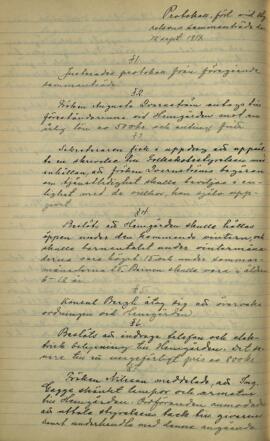 Protokoll, fört vid sty-
relsens sammanträde den
12 sept. 1917.
§1.
Justerades protokoll från föregående
sammanträde.
§2.
Fröken Augusta antogs till
föreståndarinna vid Hemgården mot en
årlig lön av 500 kr och allting fritt.
§3.
Sekreteraren fick i uppdrag att uppsät-
ta en skrivelse till Folkskolestyrelsen med
anhållan, att fröken begäran
om tjänstledighet skulle beviljas i en-
lighet med de villkor, hon själv upp-
gjort.
§4.
Beslöts att Hemgården skulle hållas
öppen under den kommande vintern, och
skulle barnantalet under vintermåna-
derna vara högst 15 och under sommar-
månaderna Barnen skulle vara i åldern
§5.
Konsul Bergh åtog sig att övervaka
ordningen och Hemgården.
§6.
Beslöts att indraga telefon och elek-
trisk belysning till Hemgården. Det se-
nare till ungefärligt pris av 800 kr.
§7.
Fröken Nilsson meddelade, att Ing.
skänkt lampor och armatur
till Hemgården. Ordföranden anmodades
att uttala styrelsens tack till givaren
samt underhandla med denne angående